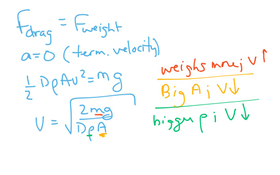 F drag = F weight
a = 0 (term. velocity)
1/2 DρAv² = mg
V = √(2mg / DρA)
weighs more, V ↑
Big A ; V ↓
bigger ρ ; V ↓